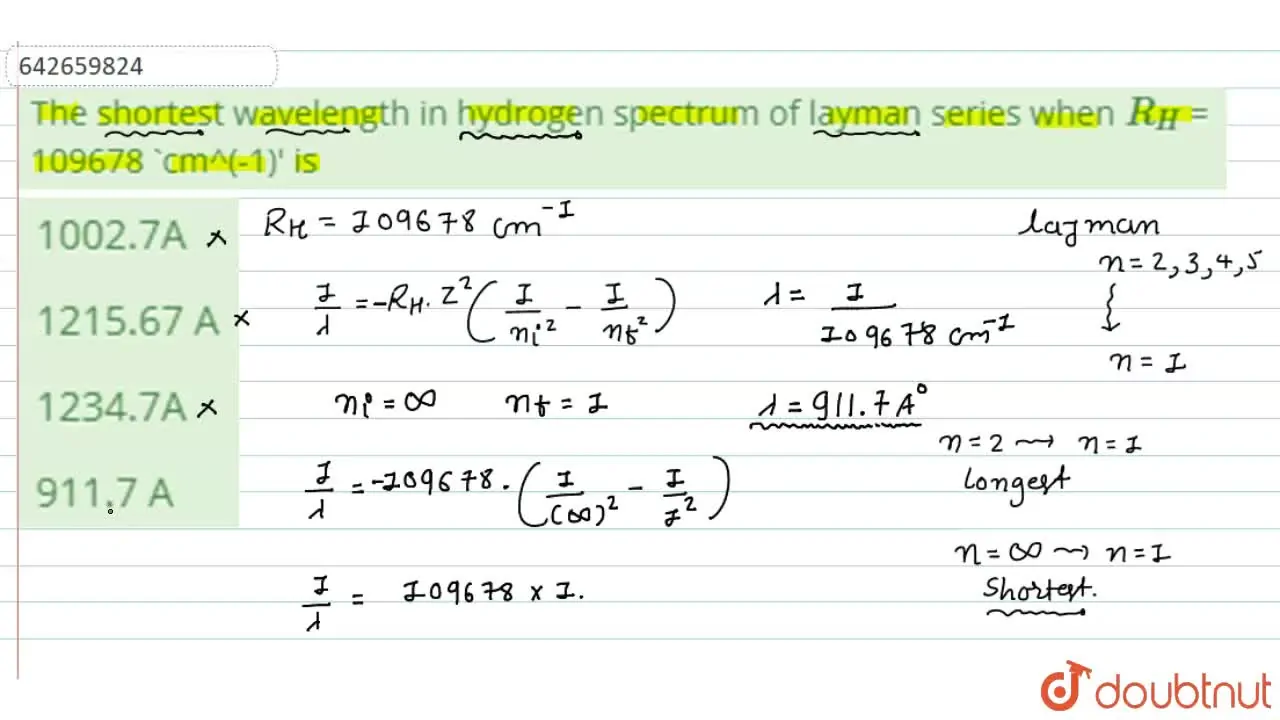 642659824
The shortest wavelength in hydrogen spectrum of layman series when R_H =
109678 `cm^(-1)' is
1002.7A ×
1215.67 A ×
1234.7A ×
911.7 A
R_H = 109678 cm^-1
1/λ = -R_H. Z^2 (1/n_i^2 - 1/n_f^2)
n_i = ∞ n_f = 1
1/λ = -109678. (1/(∞)^2 - 1/1^2)
1/λ = 109678 × 1.
λ = 1/109678 cm^-1
λ = 911.7 A°
layman
n = 2, 3, 4, 5
n = 1
n = 2 → n = 1
Longest
n = ∞ → n = 1
Shortest.
doubtnut